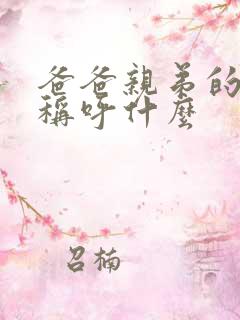 爸爸親弟的
稱呼什麼
召楠